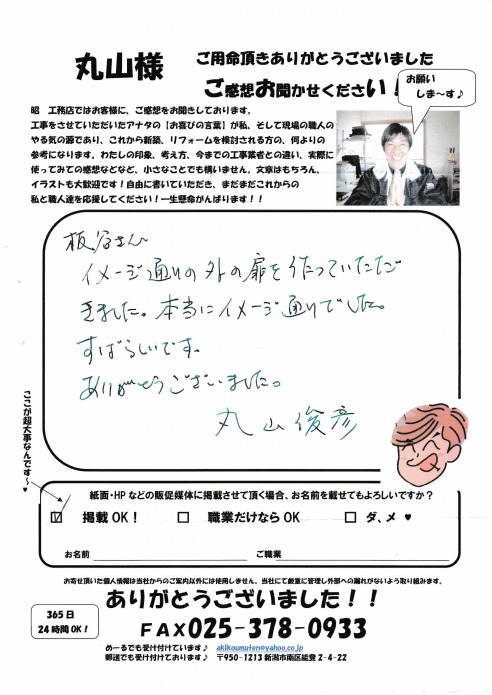 丸山様
ご用命頂きありがとうございました
ご感想お聞かせください！
お願い
しま～す♪
昭　工務店ではお客様に、ご感想をお聞きしております。
工事をさせていただいたアナタの「お喜びの言葉」が私、そして現場の職人の
やる気の源であり、これから新築、リフォームを検討される方の、何よりの
参考になります。わたしの印象、考え方、今までの工事業者との違い、実際に
使ってみての感想などなど、小さなことでも構いません。文章はもちろん、
イラストも大歓迎です！自由に書いていただき、まだまだこれからの
私と職人達を応援してください！一生懸命がんばります！！
板谷さん
イメージ通りの外の扉をうたっていただ
きました。本当にイメージ通りでした。
すばらしいです。
ありがとうございました。
丸山俊彦
ここが超大事なんです～♥
紙面・HPなどの販促媒体に掲載させて頂く場合、お名前を載せてもよろしいですか？
☑ 掲載OK！ □ 職業だけならOK □ ダ、メ ♥
お名前 ご職業
お寄せ頂いた個人情報は当社からのご案内以外には使用しません。当社にて厳重に管理し外部への漏れがないよう取り組みます。
365日
24時間OK！
ありがとうございました！！
FAX025-378-0933
めーるでも受け付けています♪ akikoumuten@yahoo.co.jp
郵送でも受け付けております♪ 〒950-1213 新潟市南区能登2-4-22